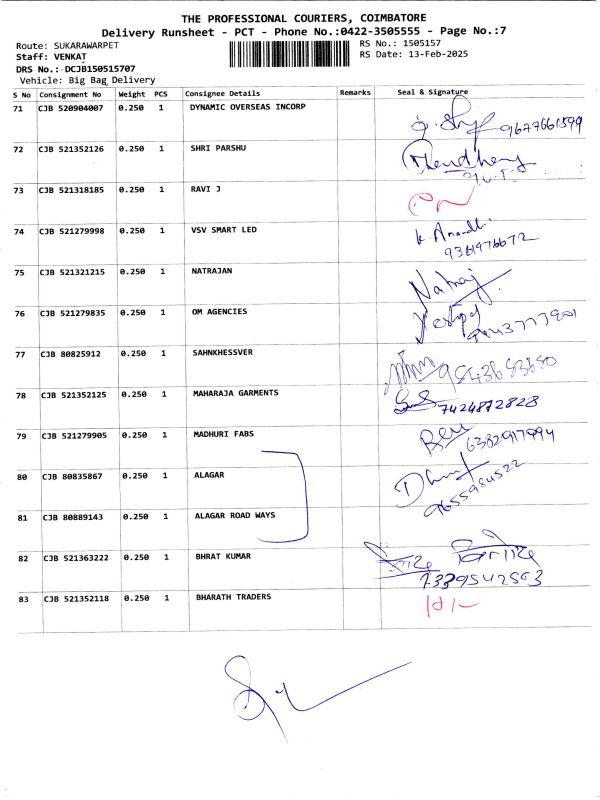 THE PROFESSIONAL COURIERS, COIMBATORE
Delivery Runsheet - PCT - Phone No.:0422-3505555 - Page No.:7
Route: SUKARAWARPET
RS No.: 1505157
Staff: VENKAT
RS Date: 13-Feb-2025
DRS No.: DCJB150515707
Vehicle: Big Bag Delivery
S No Consignment No Weight PCS Consignee Details Remarks Seal & Signature
71 CJB 520904007 0.250 1 DYNAMIC OVERSEAS INCORP
9677661599
72 CJB 521352126 0.250 1 SHRI PARSHU
73 CJB 521318185 0.250 1 RAVI J
74 CJB 521279998 0.250 1 VSV SMART LED
9361976672
75 CJB 521321215 0.250 1 NATRAJAN
Natraj
76 CJB 521279835 0.250 1 OM AGENCIES
77 CJB 80825912 0.250 1 SAHNKHESSVER
9543683680
78 CJB 521352125 0.250 1 MAHARAJA GARMENTS
7424872828
79 CJB 521279905 0.250 1 MADHURI FABS
6382917994
80 CJB 80835867 0.250 1 ALAGAR
9655984522
81 CJB 80889143 0.250 1 ALAGAR ROAD WAYS
82 CJB 521363222 0.250 1 BHRAT KUMAR
7339542563
83 CJB 521352118 0.250 1 BHARATH TRADERS